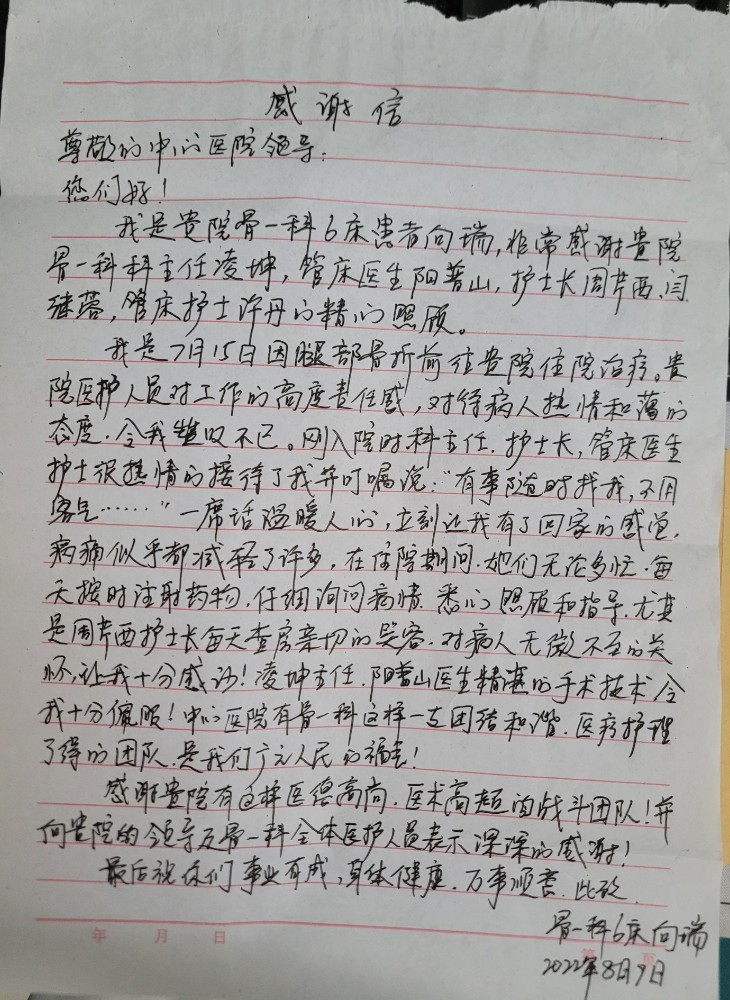 感谢信
尊敬的中心医院领导:
您们好!
我是贵院骨一科6床患者向瑞,非常感谢贵院
骨一科科主任凌坤,管床医生阳普山,护士长周芹西、闫
继蓉,管床护士许丹的精心照顾。
我是7月15日因腿部骨折前往贵院住院治疗。贵
院医护人员对工作的高度责任感,对待病人热情和蔼的
态度.令我难以不已。刚入院时科主任.护士长,管床医生
护士很热情的接待了我并叮嘱说:“有事随时找我,不用
客气……”一席话温暖人心,立刻让我有了回家的感觉,
病痛似乎都减轻了许多,在住院期间.她们无论多忙.每
天按时注射药物.仔细询问病情.悉心照顾和指导.尤其
是周芹西护士长每天查房亲切的笑容.对病人无微不至的关
怀,让我十分感动!凌坤主任.阳普山医生精湛的手术技术令
我十分佩服!中心医院有骨一科这样一支团结和谐.医疗护理
了得的团队.是我们广元人民的福气!
感谢贵院有这样医德高尚.医术高超的战斗团队!并
向贵院的领导及骨一科全体医护人员表示深深的感谢!
最后祝你们事业有成,身体健康.万事顺意.此致
骨一科6床向瑞
年 月 日
2022年8月9日